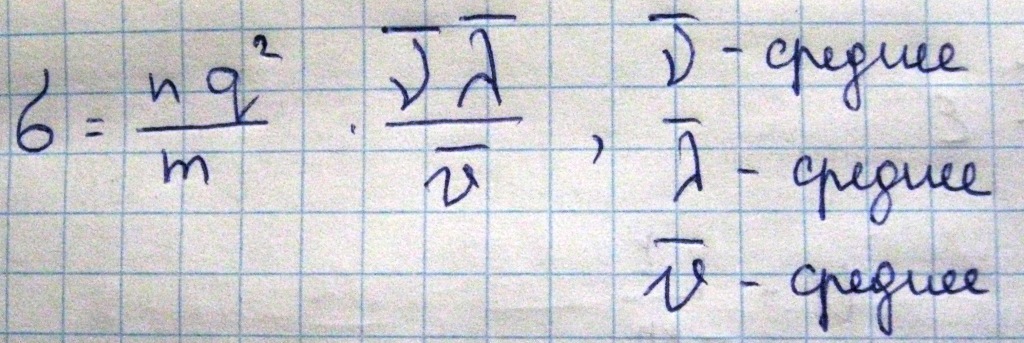 σ = nq²/m · ν̄ λ̄/v̄ , ν̄ - среднее
λ̄ - среднее
v̄ - среднее